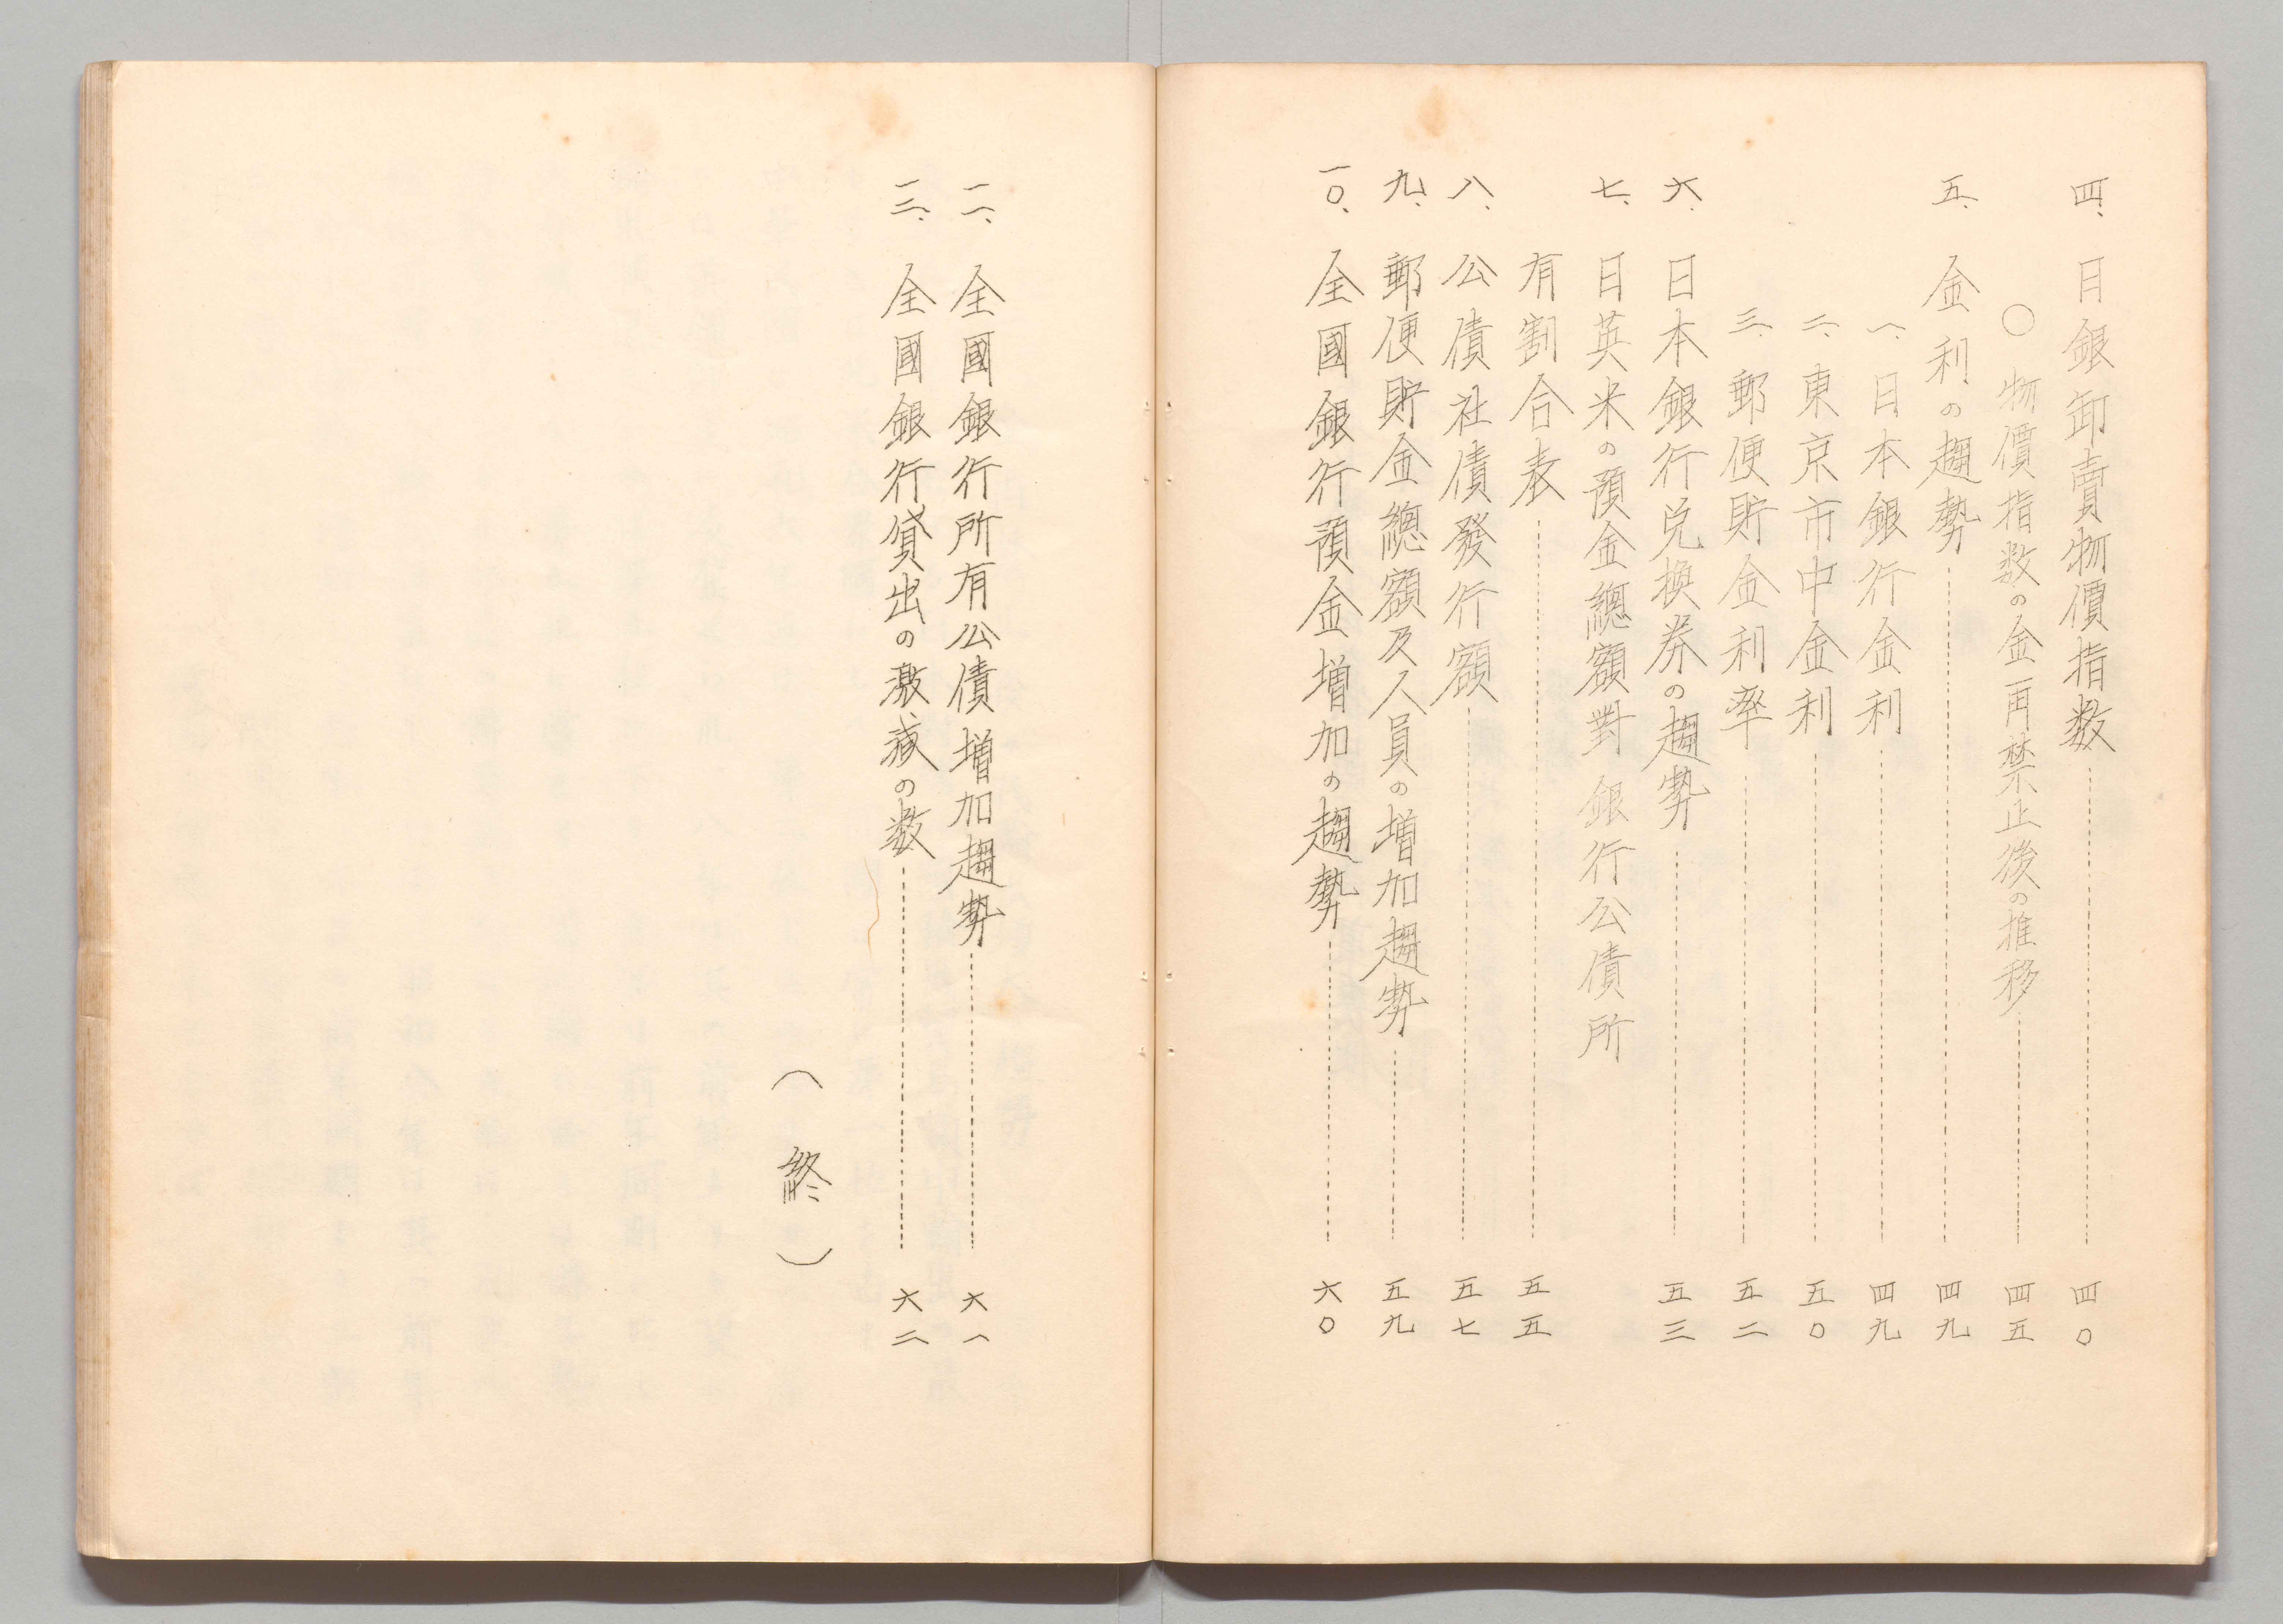 四、日銀卸賣物價指数………四〇
〇物價指数の金再禁止後の推移………四五
五、金利の趨勢………四九
一、日本銀行金利………四九
二、東京市中金利………五〇
三、郵便貯金利率………五二
六、日本銀行兌換券の趨勢………五三
七、日英米の預金總額對銀行公債所
有割合表………五五
八、公債社債發行額………五七
九、郵便貯金總額及人員の増加趨勢………五九
一〇、全國銀行預金増加の趨勢………六〇
一一、全國銀行所有公債増加趨勢………六一
一二、全國銀行貸出の激減の数………六二
(終)